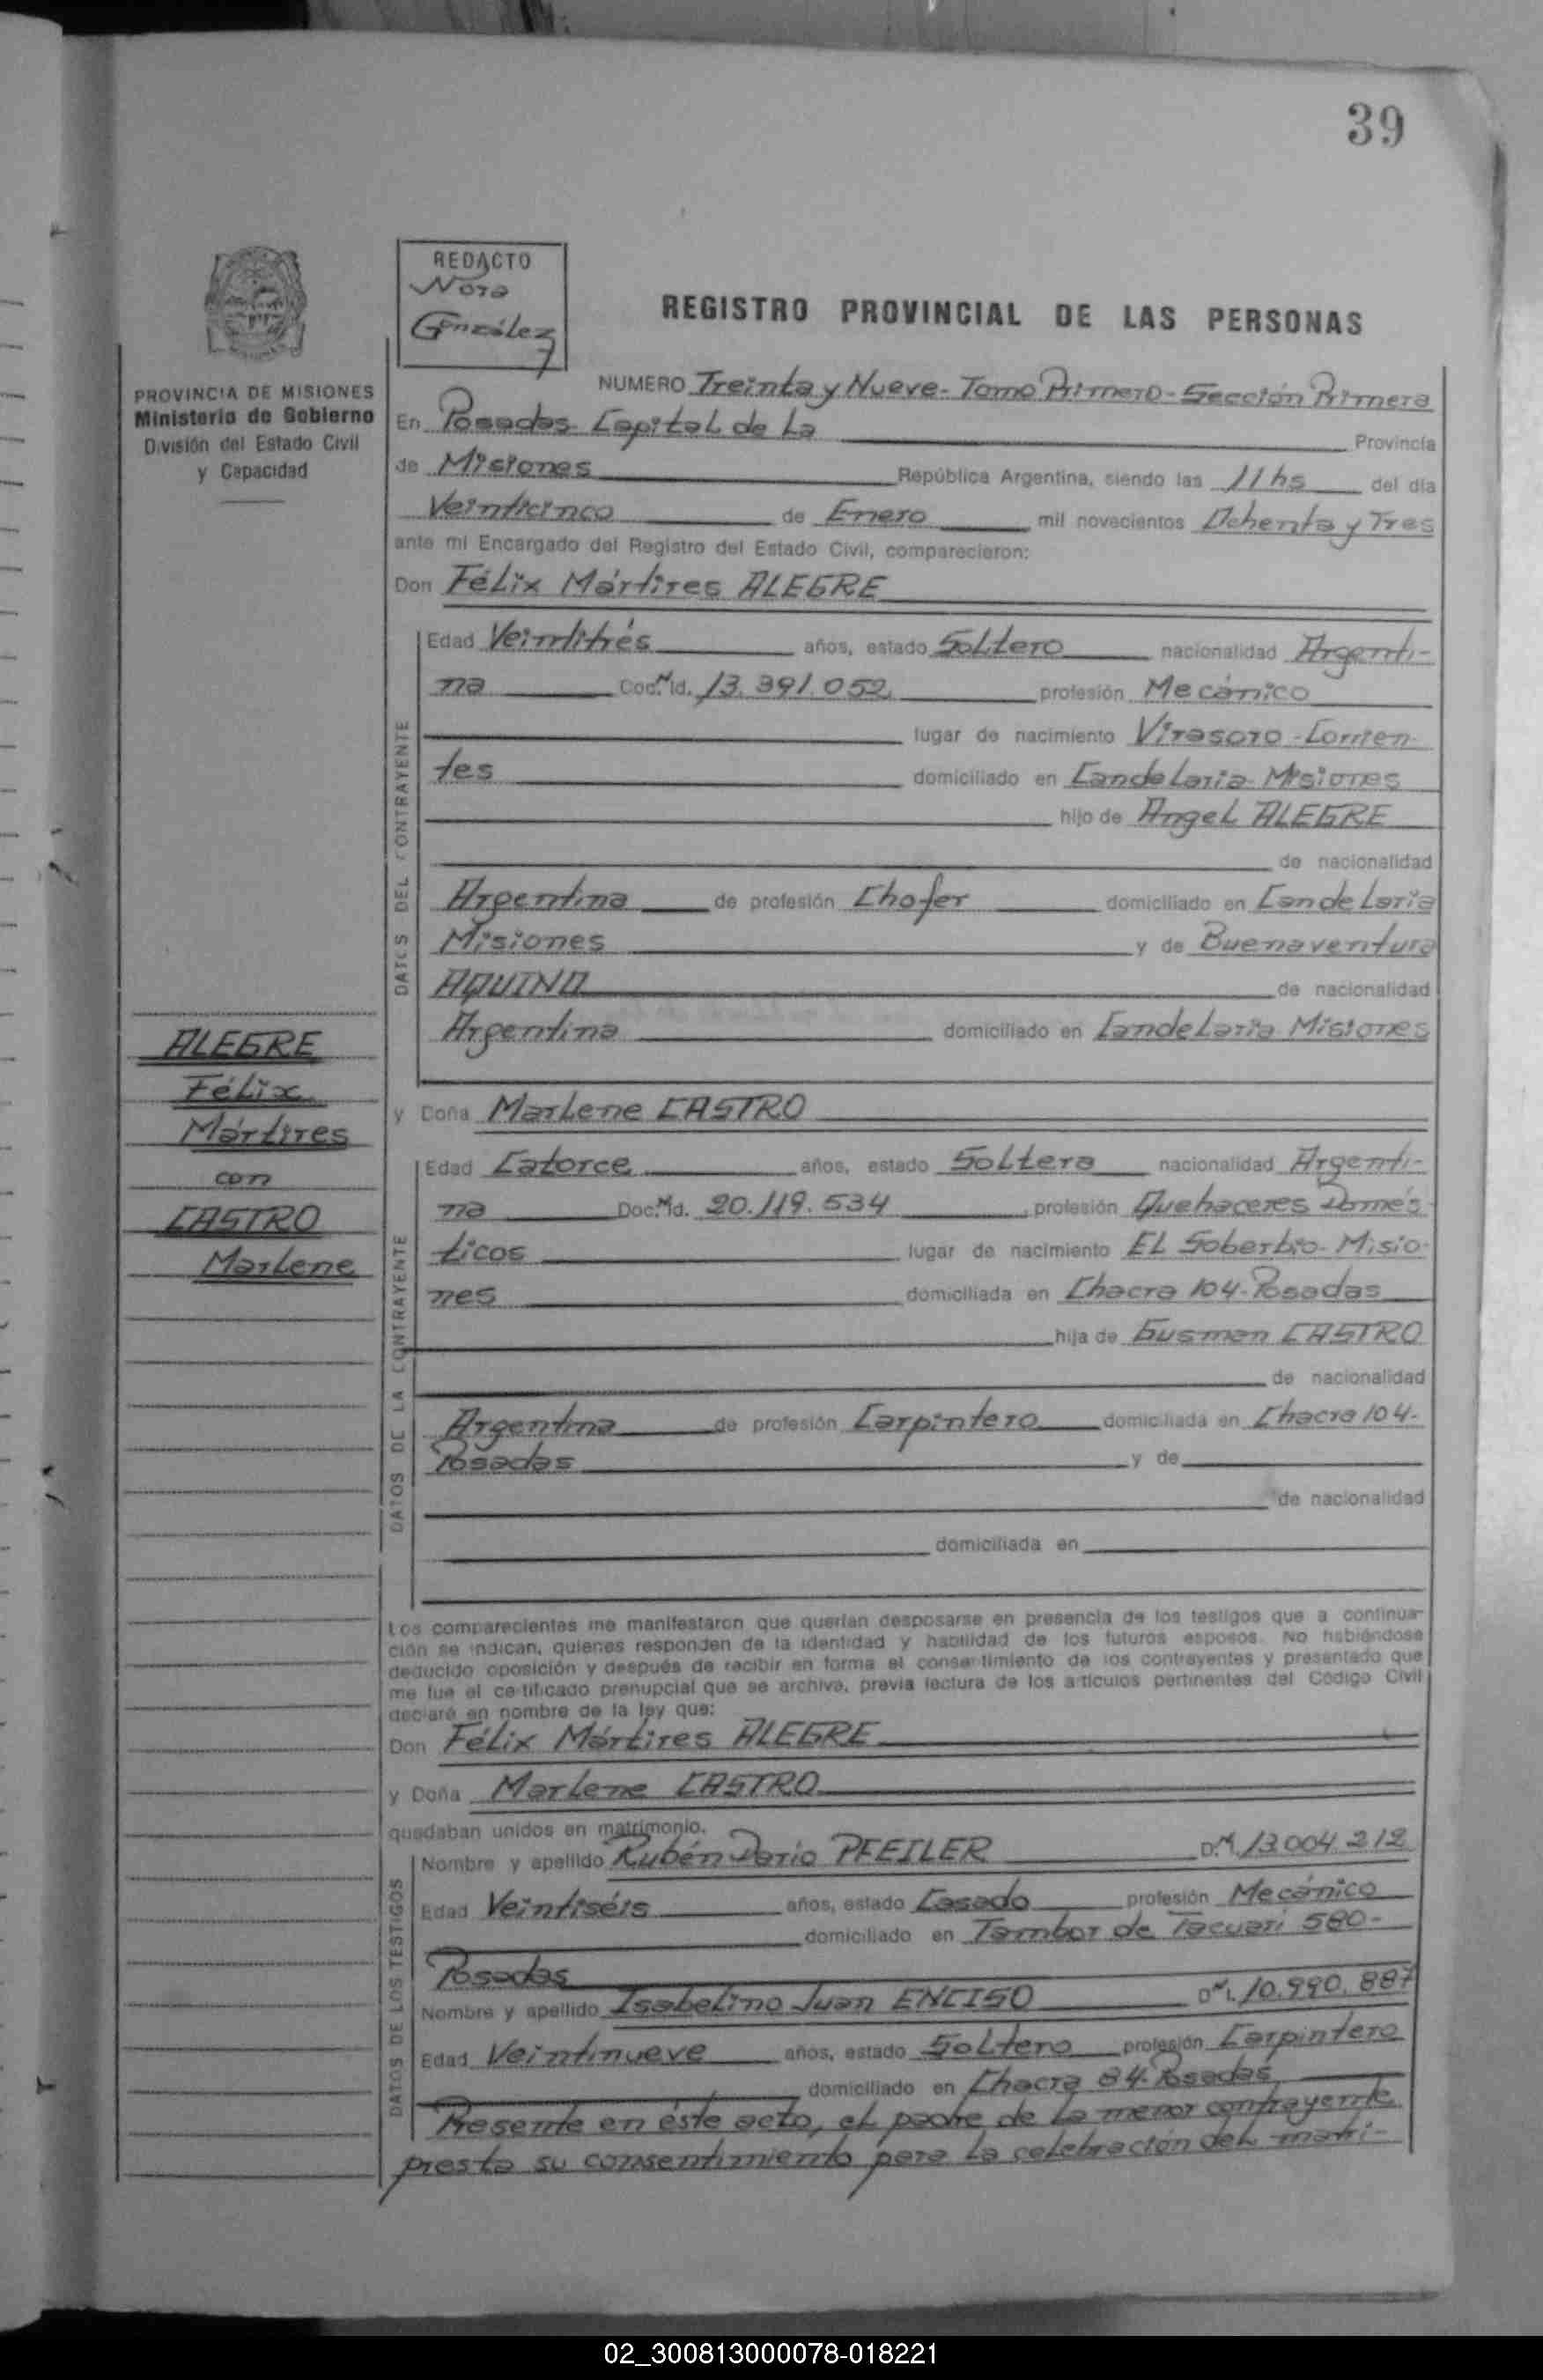 39
REDACTO
Nora
González
REGISTRO PROVINCIAL DE LAS PERSONAS
PROVINCIA DE MISIONES
Ministerio de Gobierno
División del Estado Civil
y Capacidad
NUMERO Treinta y Nueve - Tomo Primero - Sección Primera
En Posadas Capital de La Provincia
de Misiones República Argentina, siendo las 11 hs del día
Veinticinco de Enero mil novecientos Ochenta y Tres
ante mí Encargado del Registro del Estado Civil, comparecieron:
Don Félix Mártires ALEGRE
DATOS DEL CONTRAYENTE
Edad Veintitrés años, estado Soltero nacionalidad Argenti-
na Doc. Id. 13.391.052 profesión Mecánico
lugar de nacimiento Virasoro - Corrien-
tes domiciliado en Candelaria Misiones
hijo de Angel ALEGRE
de nacionalidad
Argentina de profesión Chofer domiciliado en Candelaria
Misiones y de Buenaventura
AQUINO de nacionalidad
Argentina domiciliado en Candelaria Misiones
ALEGRE
Félix
Mártires
con
CASTRO
Marlene
y Doña Marlene CASTRO
DATOS DE LA CONTRAYENTE
Edad Catorce años, estado Soltera nacionalidad Argenti-
na Doc. Id. 20.119.534 profesión Quehaceres Domés-
ticos lugar de nacimiento EL Soberbio - Misio-
nes domiciliada en Chacra 104 - Posadas
hija de Gusmon CASTRO
de nacionalidad
Argentina de profesión Carpintero domiciliada en Chacra 104 -
Posadas y de
de nacionalidad
domiciliada en
Los comparecientes me manifestaron que querían desposarse en presencia de los testigos que a continua-
ción se indican, quienes responden de la identidad y habilidad de los futuros esposos. No habiéndose
deducido oposición y después de recibir en forma el consentimiento de los contrayentes y presentado que
me fue el certificado prenupcial que se archiva, previa lectura de los artículos pertinentes del Código Civil
declaré en nombre de la ley que:
Don Félix Mártires ALEGRE
y Doña Marlene CASTRO
quedaban unidos en matrimonio.
DATOS DE LOS TESTIGOS
Nombre y apellido Rubén Dario PFEILER D.M. 13.004.212
Edad Veintiséis años, estado Casado profesión Mecánico
domiciliado en Tambor de Tacuari 580 -
Posadas
Nombre y apellido Isabelino Juan ENCISO D.M.I. 10.990.887
Edad Veintinueve años, estado Soltero profesión Carpintero
domiciliado en Chacra 84 - Posadas
Presente en éste acto, el padre de la menor contrayente
presta su consentimiento para la celebración del matri-
02_300813000078-018221